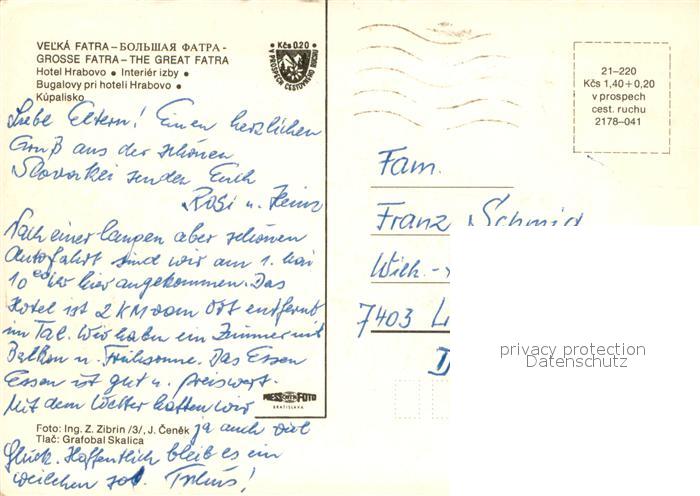 VEĽKÁ FATRA – БОЛЬШАЯ ФАТРА -
GROSSE FATRA – THE GREAT FATRA
Hotel Hrabovo • Interiér izby •
Bugalovy pri hoteli Hrabovo •
Kúpalisko
Kčs 0,20
V PROSPECH CESTOVNÉHO RUCHU
Liebe Eltern! Einen herzlichen
Gruß aus der schönen
Slovakei senden Euch
Rosi u. Heinz
Nach einer langen aber schönen
Autofahrt sind wir am 1. Mai
10 00 Uhr hier angekommen. Das
Hotel ist 2 KM vom Ort entfernt
im Tal. Wir haben ein Zimmer mit
Balkon u. Frühsonne. Das Essen
Essen ist gut u. preiswert.
Mit dem Wetter hatten wir
ja auch viel
Glück. Hoffentlich bleibt es ein
weilchen so. Tschüs!
PRESSFOTO
BRATISLAVA
Foto: Ing. Z. Zibrin /3/, J. Čeněk
Tlač: Grafobal Skalica
21–220
Kčs 1,40 + 0,20
v prospech
cest. ruchu
2178–041
Fam.
Franz Schmid
Wilh.-
7403
privacy protection
Datenschutz